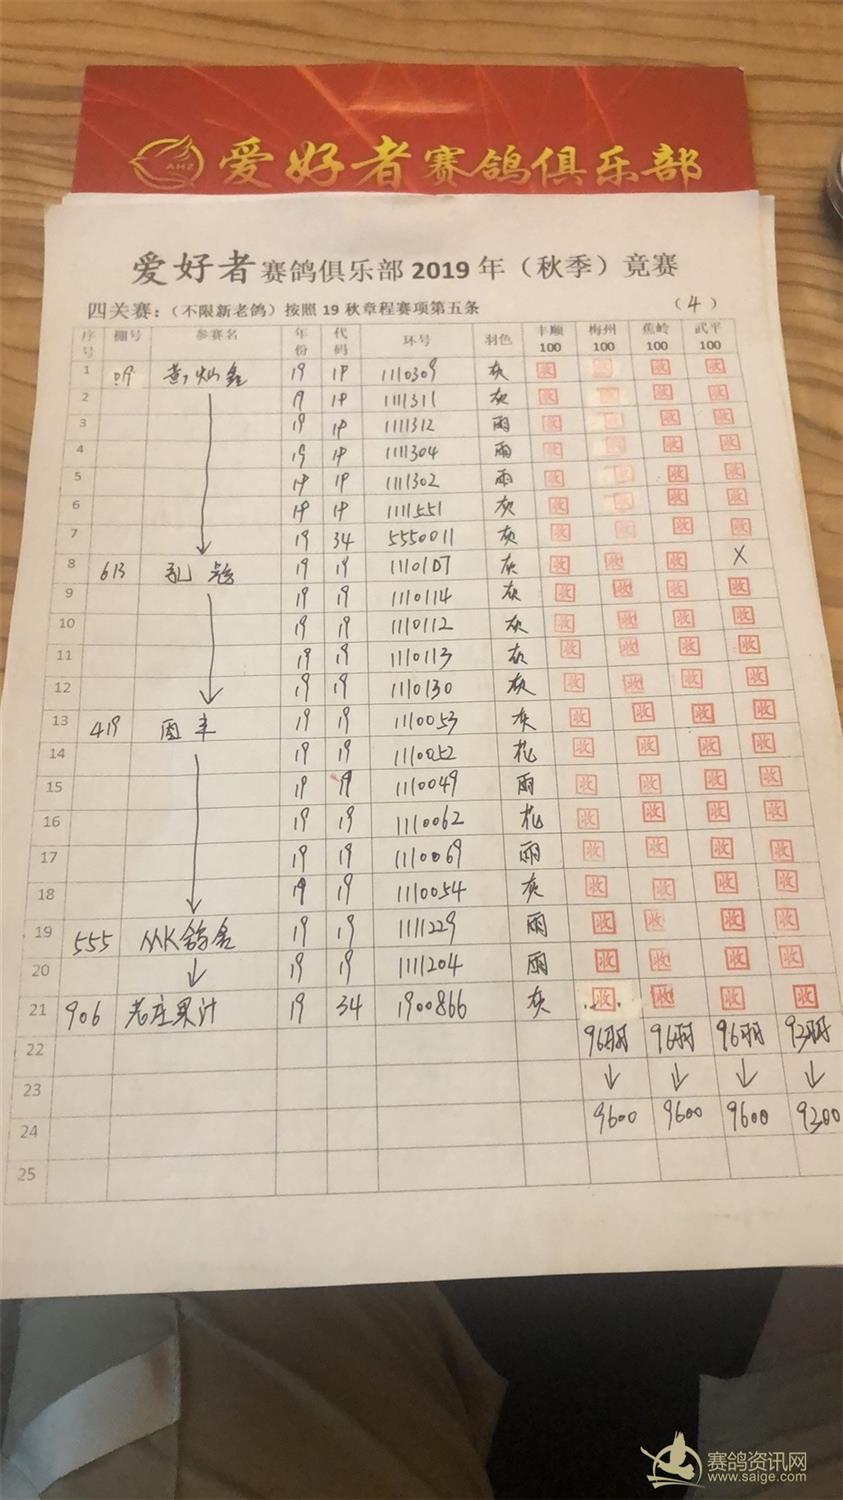 AHZ 爱好者赛鸽俱乐部
爱好者赛鸽俱乐部2019年（秋季）竟赛
四关赛：（不限新老鸽）按照19秋章程赛项第五条 （4）
序号 棚号 参赛名 年份 代码 环号 羽色 丰顺100 梅州100 蕉岭100 武平100
1 黄灿鑫 19 19 1110309 灰 收 收 收 收
2 19 19 1111311 灰 收 收 收 收
3 19 19 1111312 雨 收 收 收 收
4 19 19 1111304 雨 收 收 收 收
5 19 19 1111302 雨 收 收 收 收
6 19 19 1111551 灰 收 收 收 收
7 19 34 5550011 灰 收 收 收 收
8 613 孔 19 19 1110107 灰 收 收 收 X
9 19 19 1110114 灰 收 收 收 收
10 19 19 1110112 灰 收 收 收 收
11 19 19 1110113 灰 收 收 收 收
12 19 19 1110130 灰 收 收 收 收
13 419 丰 19 19 1110053 灰 收 收 收 收
14 19 19 1110052 花 收 收 收 收
15 19 19 1110049 雨 收 收 收 收
16 19 19 1110062 花 收 收 收 收
17 19 19 1110069 雨 收 收 收 收
18 19 19 1110054 灰 收 收 收 收
19 555 MK鸽舍 19 19 1111229 雨 收 收 收 收
20 19 19 1111204 雨 收 收 收 收
21 906 老庄果汁 19 34 1900866 灰 收 收 收 收
22 96羽 96羽 96羽 93羽
23
24 9600 9600 9600 9300
25
赛鸽资讯网
www.saige.com